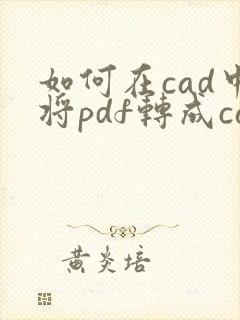 如何在cad中
將pdf轉成ca
黃炎培